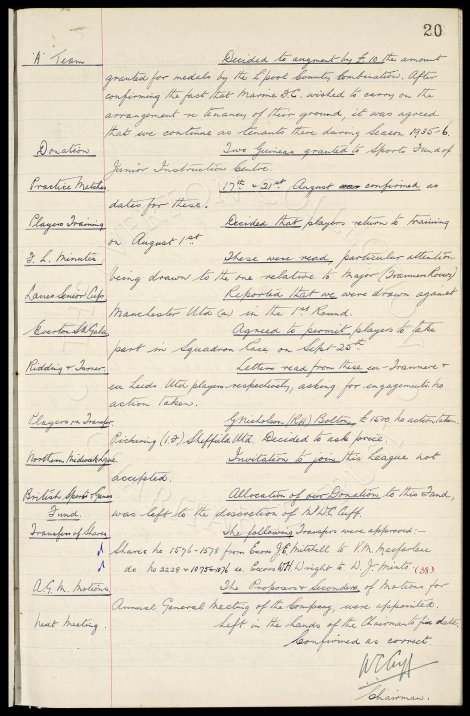 20
'A' Team Decided to augment by £10 the amount
granted for medals by the L'pool County Combination. After
confirming the fact that Marine F.C. wished to carry on the
arrangement re tenancy of their ground, it was agreed
that we continue as tenants there during Season 1935-6.
Donation Two Guineas granted to Sports Fund of
Junior Instruction Centre.
Practice Matches 17th & 21st August confirmed as
dates for these.
Players Training Decided that players return to training
on August 1st.
F. L. Minutes These were read, particular attention
being drawn to the one relative to Major
Lancs Senior Cup Reported that we were drawn against
Manchester Utd (a) in the 1st Round.
Everton Gala Agreed to permit players to take
part in Squadron Race on Sept 25th.
Ridding & Turner Letters read from these ex-Tranmere &
ex Leeds Utd players respectively, asking for engagement: no
action taken.
Players on Transfer. G Nicholson (R.H) Bolton, £1500, no action taken.
Pickering (I.F.) Sheffield Utd. Decided to ask price.
Northern Midweek Lge Invitation to join this League not
accepted.
British Sports & Games Allocation of our Donation to this Fund,
Fund. was left to the discretion of Mr W.C. Cuff.
Transfers of Shares The following Transfers were approved:-
Shares no 1576-1578 from Exors J.E. Mitchell to P.M. Macfarlane
do no 2229 & 1075-1076 do. Exors W H Wright to D. J. (38)
A.G.M. Motions The Proposers & Seconders of Motions for
Annual General Meeting of the Company, were appointed.
Next Meeting. Left in the hands of the Chairman to fix date.
Confirmed as correct.
W C Cuff
Chairman.